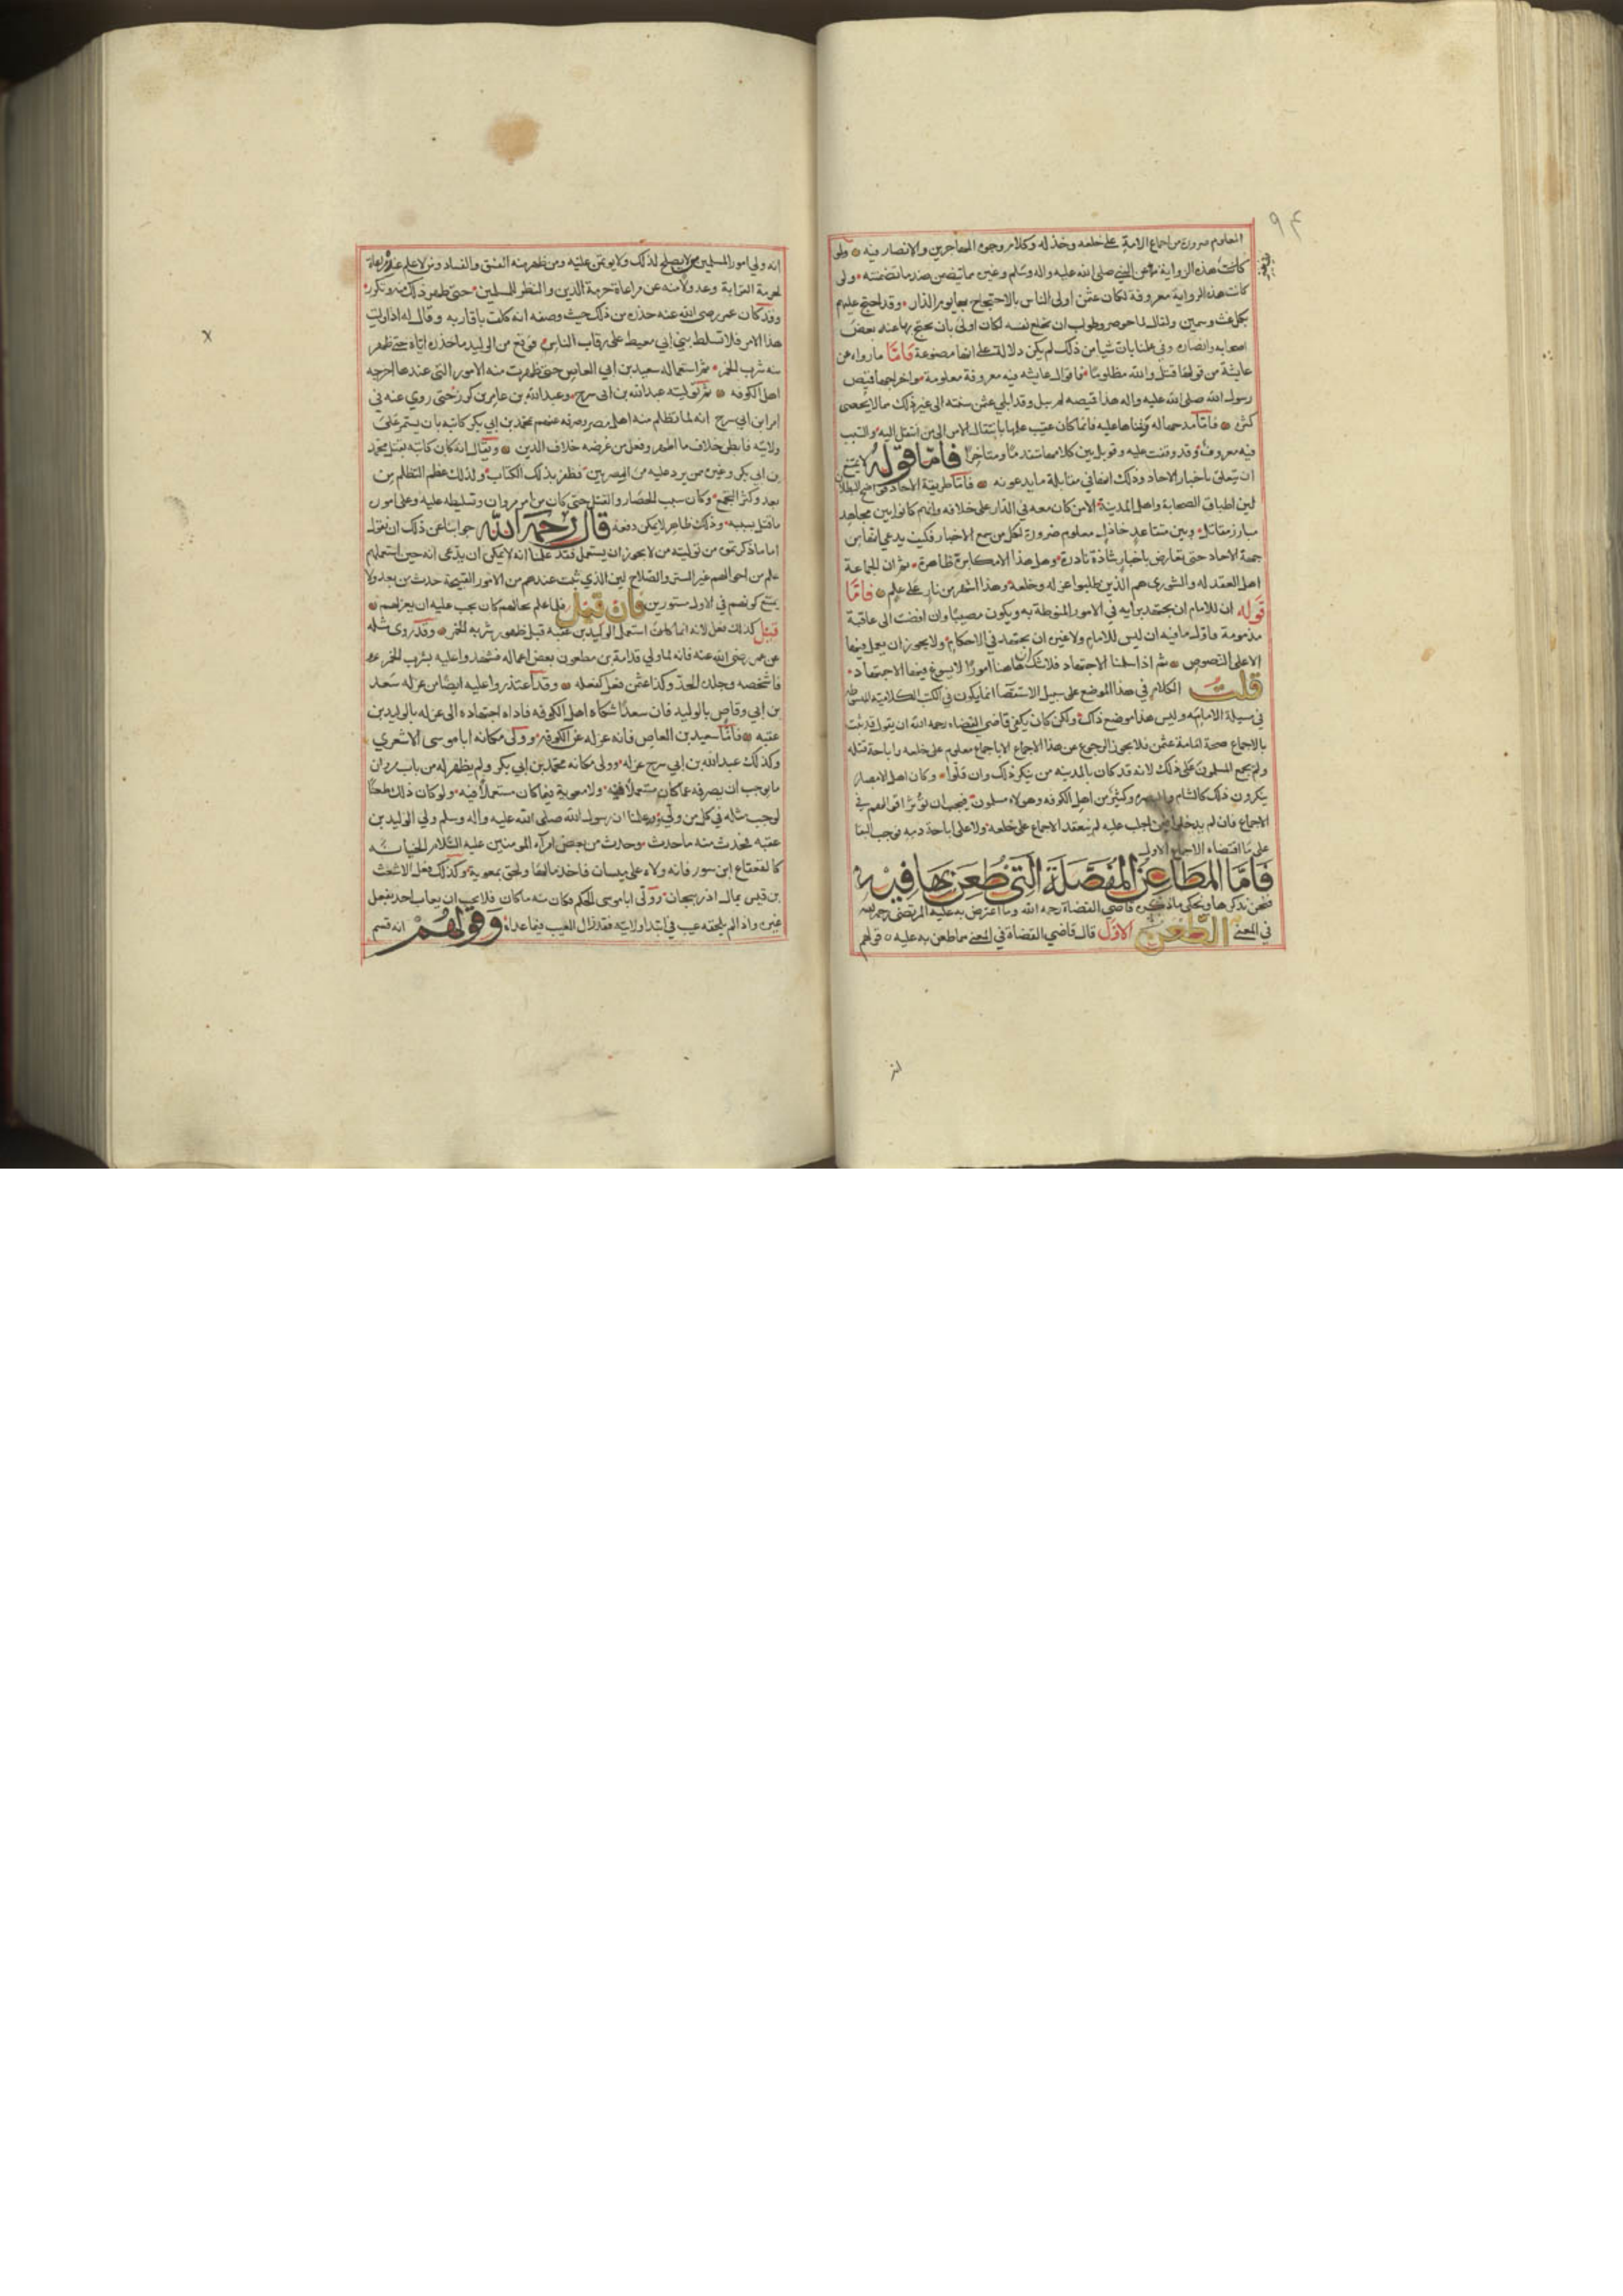 ٩٤
المعلوم ضرورة من اجماع الامة على خلعه وخذله وكلام وجوه المهاجرين والانصار فيه ولو
كانت هذه الرواية عن النبي صلى الله عليه واله وسلم وغيره مما يتضمن ضد ما تضمنته ولو
كانت هذه الرواية معروفة لكان عثمن اولى الناس بالاحتجاج بها يوم الدار وقد احتج عليهم
بكل غث وسمين ولقال لما حوصر وطولب ان يخلع نفسه لكان اولى بان يحتج بها عنه بعض
اصحابه وانصاره وفي علمنا بان شيا من ذلك لم يكن دلالة على انها مصنوعة فاما ما رواه عن
عايشة من قولها قتل والله مظلوما فاقوال عايشه فيه معروفة معلومة واخراجها قميص
رسول الله صلى الله عليه واله هذا قميصه لم يبل وقد ابلى عثمن سنته الى غير ذلك مما لا يحصى
كثره فاما مدحها له وثناها عليه فانما كان عقيب علمها بانتقال الامر الى من انتقل اليه والسبب
فيه معروف وقد وقفت عليه وقوبل بين كلامها متقدما ومتاخرا فاما قوله لا يمتنع
ان يتعلق باخبار الاحاد وذلك انها في مقابلة ما يدعونه فاما طريقة الاحاد فواضح البطلان
لان اطباق الصحابة واهل المدينة الا من كان معه في الدار على خلافه وانهم كانوا بين مجاهد
مبارز مقاتل وبين متقاعد خاذل معلوم ضرورة لكل من سمع الاخبار فكيف يدعي انها من
جهة الاحاد حتى يعارض باخبار شاذة نادرة وهل هذا الا مكابرة ظاهرة
اهل العقد له والشورى هم الذين طلبوا عزله وخلعه وهذا اشهر من نار على علم فاما
قوله ان للامام ان يجتهد برايه في الامور المنوطة به ويكون مصيبا وان افضت الى عاقبة
مذمومة فاول ما فيه ان ليس للامام ولا غيره ان يجتهد في الاحكام ولا يجوز ان يعمل فيها
الا على النصوص ثم اذا سلمنا الاجتهاد فلا شك ان هاهنا امورا لا يسوغ فيها الاجتهاد
قلت الكلام في هذا الموضع على سبيل الاستقصا انما يكون في الكتب الكلامية المبسوطه
في مسيلة الامامه وليس هذا موضع ذاك ولكن كان يكفي قاضي القضاه رحمه الله ان يقول قد ثبت
بالاجماع صحة امامة عثمن فلا يجوز الرجوع عن هذا الاجماع الا باجماع معلوم على خلعه واباحة قتله
ولم يجمع المسلمون على ذلك لانه قد كان بالمدينه من ينكر ذلك وان قلوا وكان اهل الامصار
ينكرون ذلك كالشام والبصره وكثير من اهل الكوفه وهولاء مسلمون فيجب ان تؤثر اقوالهم في
الاجماع فان لم يدخلوا فيمن اجلب عليه لم ينعقد الاجماع على خلعه ولا على اباحة دمه فوجب البقا
على ما اقتضاه الاجماع الاول
فاما المطاعن المفصلة التي طعن بها فيه
فنحن نذكرها ونحكى ما ذكره قاضي القضاة رحمه الله وما اعترض به عليه المرتضى رحمه الله
في المغني الطعن الاول قال قاضي القضاة في المغني مما طعن به عليه قولهم
انه ولي امور المسلمين من لا يصلح لذلك ولا يوتمن عليه ومن ظهر منه الفسق والفساد ومن لا علم عنده مراعاة
لحرمة القرابة وعدولا منه عن مراعاة حرمة الدين والنظر للمسلمين حتى ظهر ذلك منه وتكرر
وقد كان عمر رضي الله عنه حذره من ذلك حيث وصفه انه كلف باقاربه وقال له اذا وليت
هذا الامر فلا تسلط بني ابي معيط على رقاب الناس فوقع من الوليد ما حذره اياه حتى ظهر
منه شرب الخمر ثم استعماله سعيد بن ابي العاص حتى ظهرت منه الامور التى عندها اخرجه
اهل الكوفه ثم توليته عبدالله بن ابى سرح وعبدالله بن عامر بن كريز حتى روي عنه في
امر ابن ابي سرح انه لما تظلم منه اهل مصر وصرفه عنهم بمحمد بن ابي بكر كاتبه بان يستمر على
ولايته فابطن خلاف ما اظهر وفعل من غرضه خلاف الدين ويقال انه كان كاتبه بقتل محمد
بن ابي بكر وغيره ممن يرد عليه من المصريين فظفر بذلك الكتاب ولذلك عظم التظلم من
بعد وكثر الجمع وكان سبب الحصار والقتل حتى كان من امر مروان وتسلطه عليه وعلى اموره
ما قتل بسببه وذلك ظاهر لا يمكن دفعه قال رحمه الله جوابنا عن ذلك ان نقول
اما ما ذكر من توليته من لا يجوز ان يستعمل فقد علمنا انه لا يمكن ان يدعى انه حين استعملهم
علم من احوالهم غير الستر والصلاح لان الذي ثبت عندهم من الامور القبيحة حدث من بعد ولا
يمتنع كونهم في الاول مستورين فان قيل فلما علم بحالهم كان يجب عليه ان يعزلهم
قيل كذلك فعل لانه انما كان استعمل الوليد بن عقبه قبل ظهور شربه الخمر وقد روى مثله
عن عمر رضى الله عنه فانه لما ولي قدامة بن مظعون بعض اعماله فشهدوا عليه بشرب الخمر
فاشخصه وجلده الحد وكذا عثمن فعل كفعله وقد اعتذروا عليه ايضا من عزله سعد
بن ابي وقاص بالوليد فان سعدا شكاه اهل الكوفه فاداه اجتهاده الى عزله بالوليد بن
عقبه فاما سعيد بن العاص فانه عزله عن الكوفه وولى مكانه ابا موسى الاشعري
وكذلك عبدالله بن ابي سرح عزله وولى مكانه محمد بن ابي بكر ولم يظهر له من باب مروان
ما يوجب ان يصرفه عما كان مستعملا فيه ولا معوية فيما كان مستعملا فيه ولو كان ذلك طعنا
لوجب مثله في كل من ولي وعلمنا ان رسول الله صلى الله عليه واله وسلم ولي الوليد بن
عقبه فحدث منه ما حدث وحدث من بعض امراء المومنين عليه السلام الخيانه
كالقعقاع ابن سور فانه ولاه على ميسان فاخذ مالها ولحق بمعوية وكذلك فعل الاشعث
بن قيس بمال اذربيجان وولى ابا موسى الحكم فكان منه ما كان فلا يجب ان يعاب احد بفعل
غيره واذا لم يلحقه عيب في ابتدا ولايته فقد زال العيب فيما عداه وقولهم انه قسم